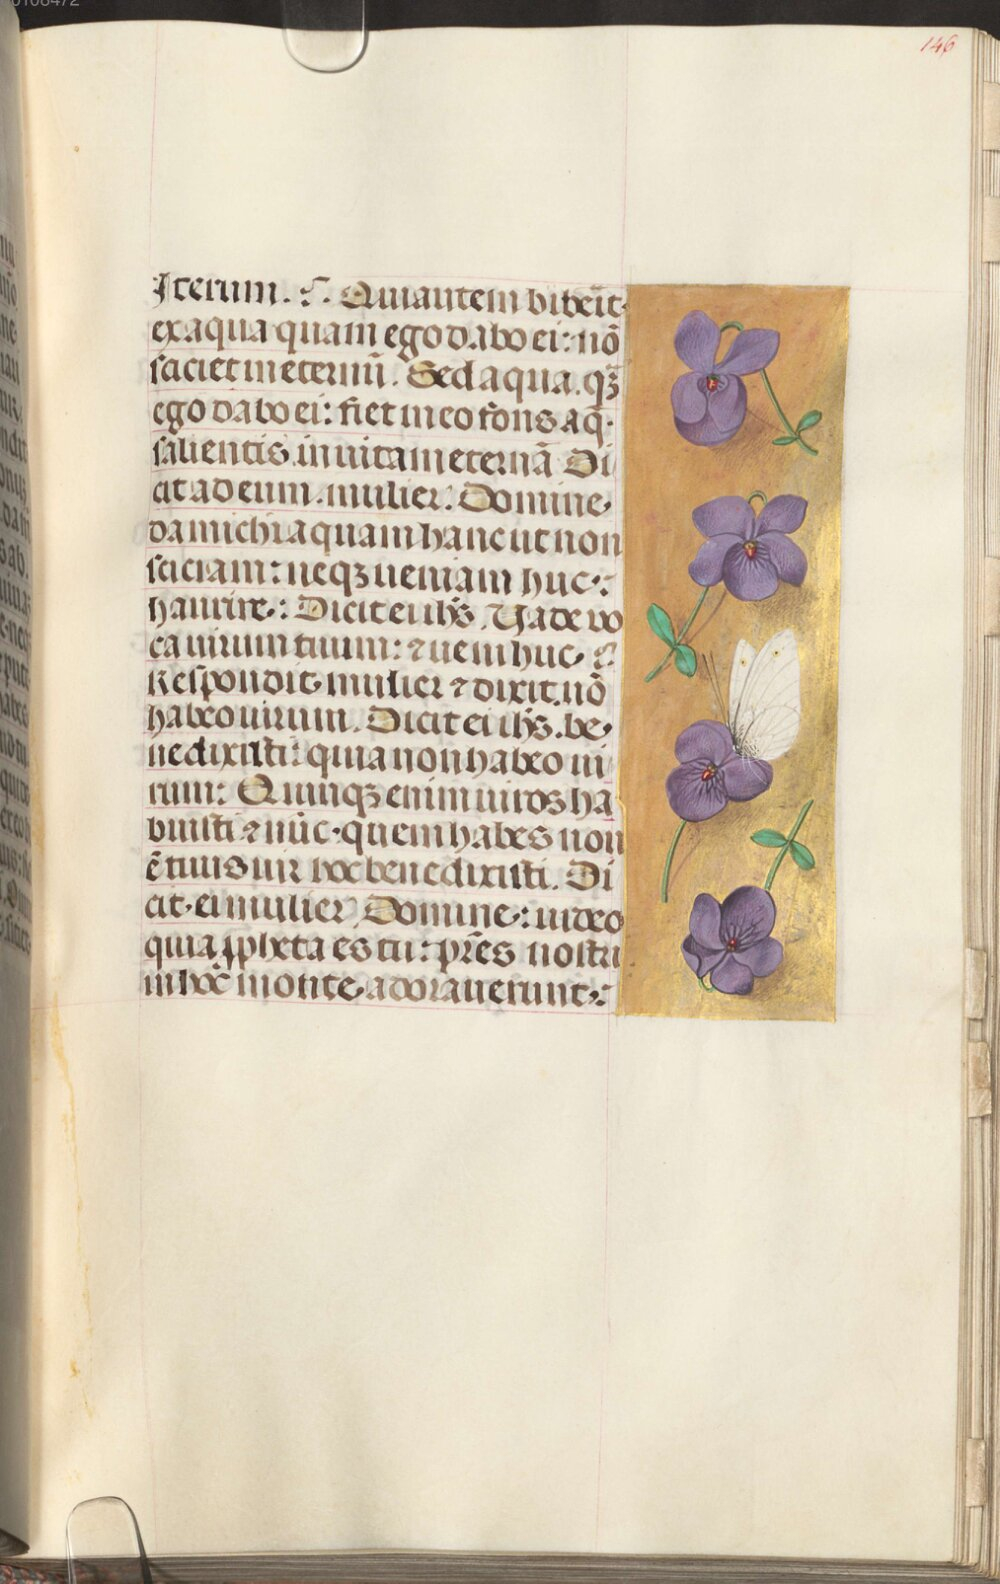 146
Iterum. Qui autem biberit
ex aqua quam ego dabo ei: nō
sitiet in eternū. Sed aqua. qȝ
ego dabo ei: fiet in eo fons aq̄.
salientis in uitam eternā Di
cit ad eum. mulier. Domine
da michi aquam hanc ut non
sitiam: neqȝ ueniam huc.
haurire: Dicit ei ihs̄. Uade uo
ca uirum tuum: ⁊ ueni huc
Respondit mulier ⁊ dixit. nō
habeo uirum. Dicit ei ihs̄. be
ne dixisti quia non habeo ui
rum: Quinqȝ enim uiros ha
buisti ⁊ nūc quem habes non
ē tuus uir hoc bene dixisti. Di
cit ei mulier Domine: uideo
quia ꝓpheta es tu: pr̄es nostri
in hoc monte adorauerunt